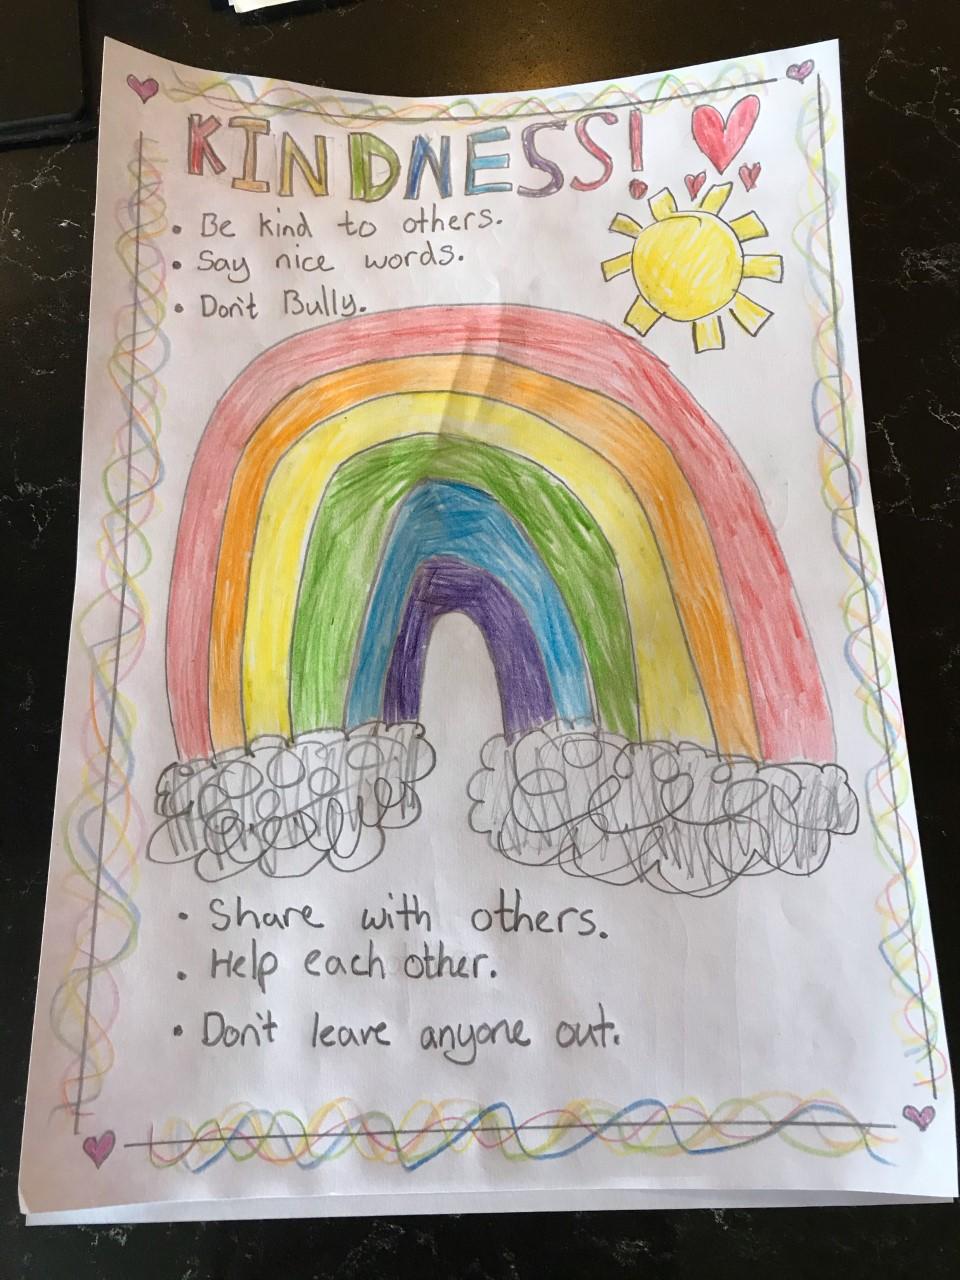 KINDNESS!
• Be kind to others.
• Say nice words.
• Don't Bully.
• Share with others.
• Help each other.
• Don't leave anyone out.